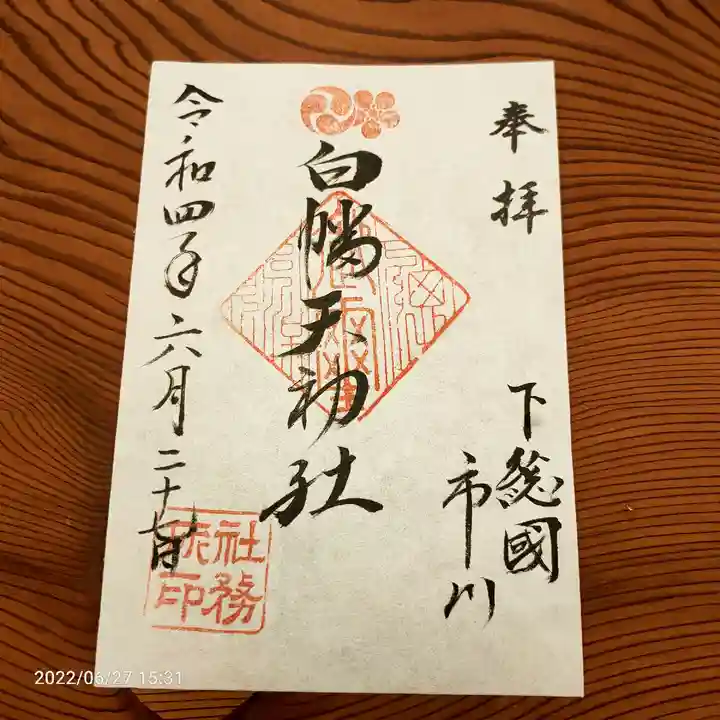 奉拝
下総國
市川
白幡天神社
令和四年六月二十七日
社務
所印
2022/06/27 15:31